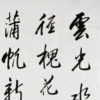 雲光水
徑槐花
蒲帆新